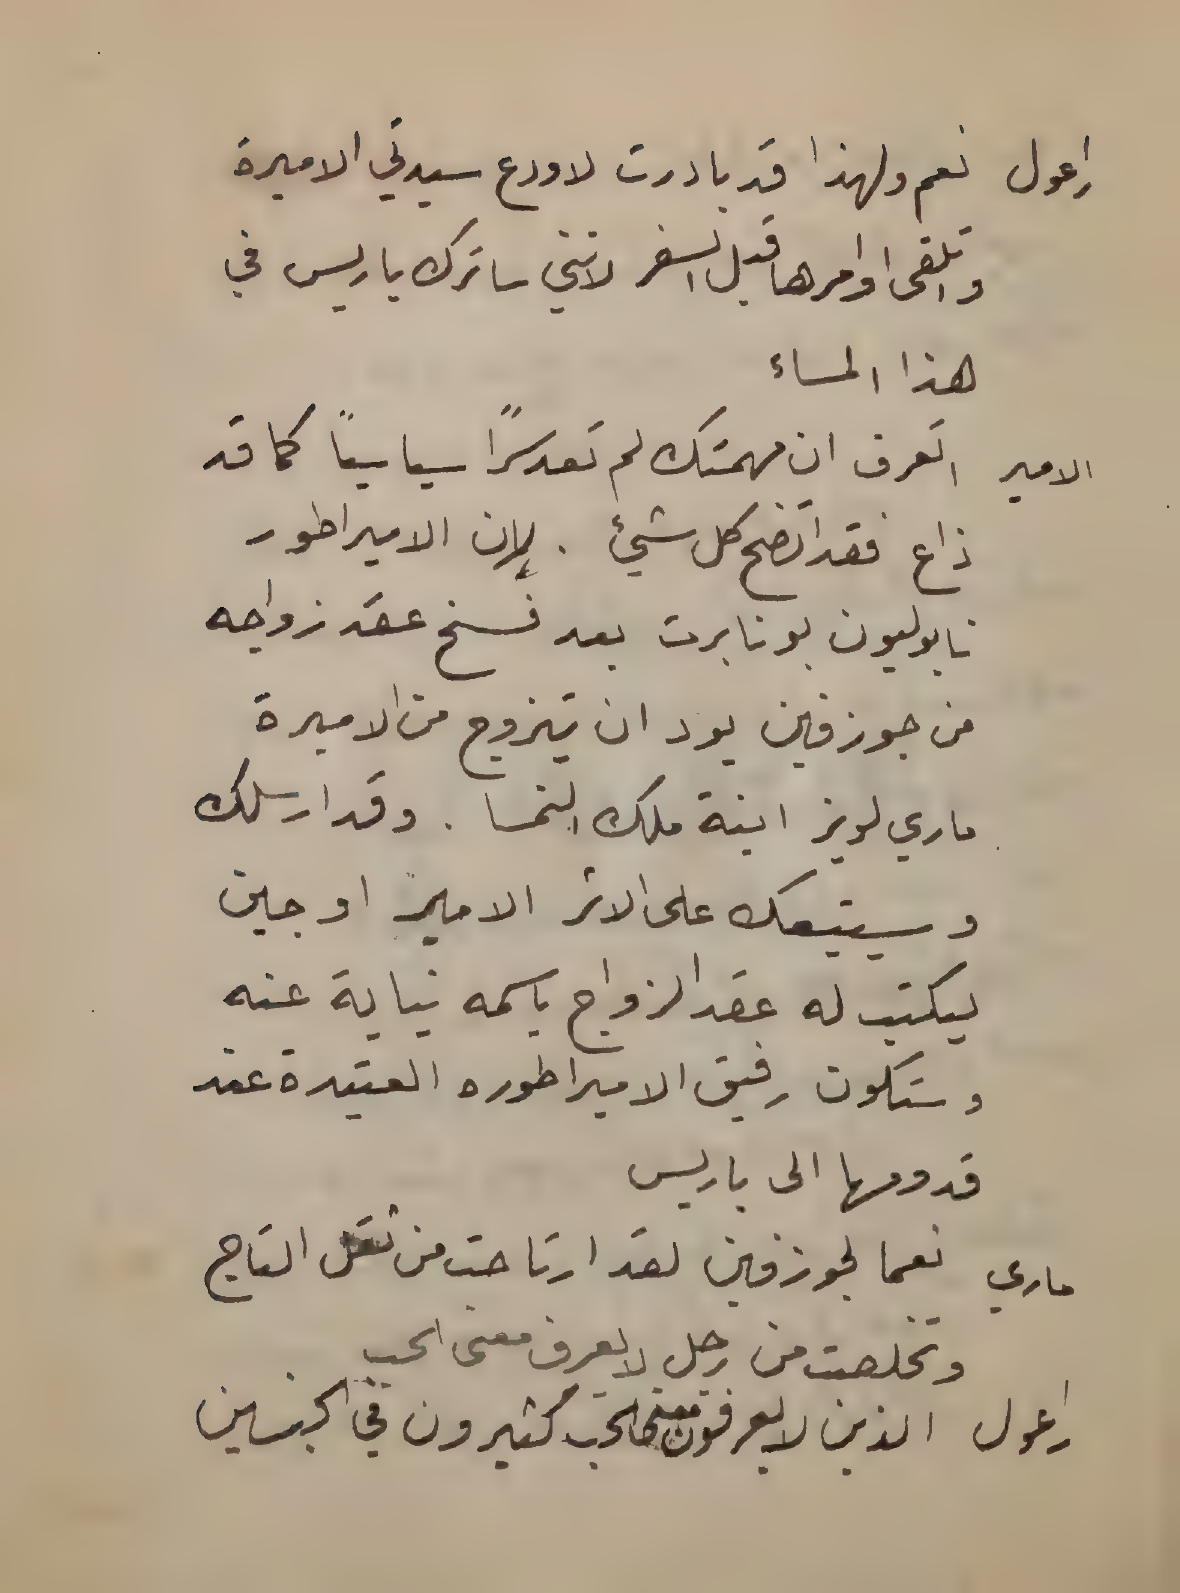 راعول نعم ولهذا قد بادرت لاودع سيدتي الاميرة
واتلقى اوامرها قبل السفر لانني ساترك باريس في
هذا المساء
الامير اتعرف ان مهمتك لم تعد سرًا سياسيًا كما قد
ذاع فقد اتضح كل شيئ . لإن الامبراطور
نابوليون بونابرت بعد فسخ عقد زواجه
من جوزفين يود ان يتزوج من الاميرة
ماري لويز ابنة ملك النمسا . وقد ارسلك
وسيتبعك على الاثر الامير اوجين
ليكتب له عقد الزواج باسمه نيابة عنه
وستكون رفيق الامبراطوره العتيدة عند
قدومها الى باريس
ماري نعما لجوزفين لقد ارتاحت من ثقل التاج
وتخلصت من رجل لا يعرف معنى الحب
راعول الذين لا يعرفون معنى الحب كثيرون في الجنسين